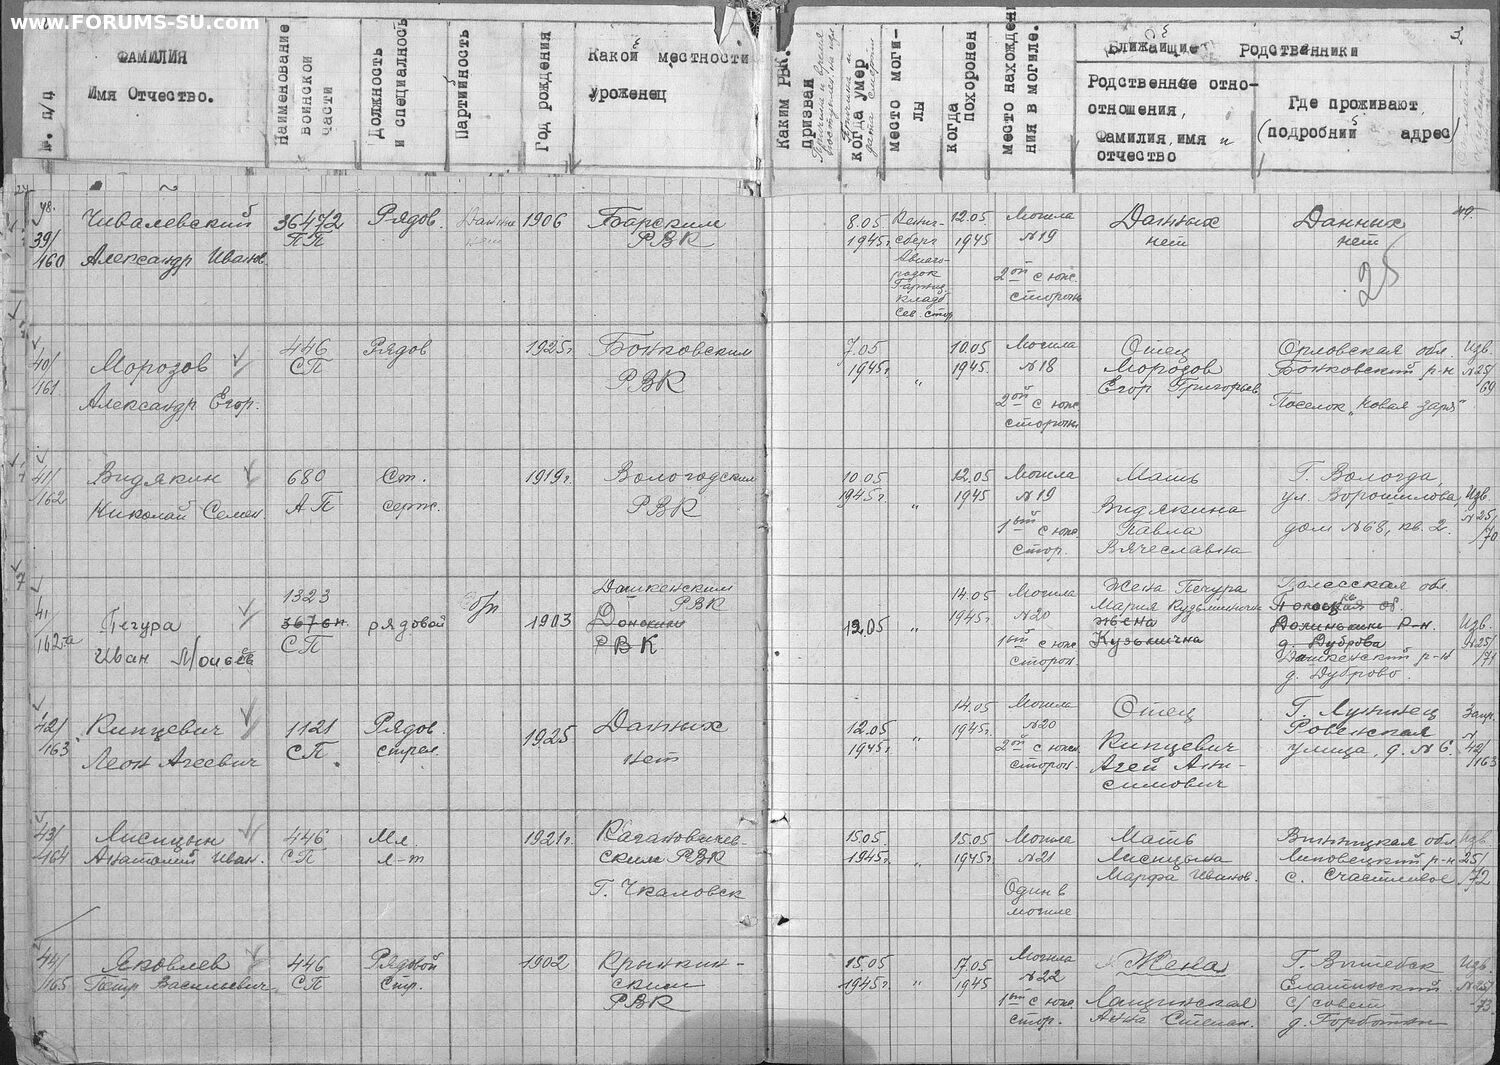 www.FORUMS-SU.com
3
№. п/ц
ФАМИЛИЯ
Имя Отчество.
Наименование
воинской
части
Должность
и специалность
Партийность
Год рождения
Какой местности
уроженец
Каким РВК.
призван
когда умер
место моги-
лы
когда
похоронен
место нахожден
ния в могиле.
Ближайщие Родственники
Родственные отно-
отношения,
Фамилия, имя и
отчество
Где проживают
(подробний адрес)
39/
160
Чивалевский
Александр Иванов.
36472
ПП
Рядов.
Данных
нет
1906
Барским
РВК
8.05
1945г.
Кениг-
сберг
Авиаго-
родок
Гарниз.
кладб
Сев. стор
12.05
1945
Могила
№19
2ой с южс.
стороны
Данных
нет
Данних
нет
25
40/
161
Морозов
Александр Егор.
446
СП
Рядов
1925г
Бонковским
РВК
7.05
1945г.
"
10.05
1945.
Могила
№18
2ой с южс.
стороны
Отец
Морозов
Егор Григорьев
Орловская обл.
Бонковский р-н
Поселок „Новая заря"
Изв.
№25/
69
41/
162
Видякин
Николай Семен.
680
АП
Ст.
серж.
1919г.
Вологодским
РВК
10.05
1945г.
"
12.05
1945
Могила
№19
1ый с южс.
стор.
Мать
Видякина
Павла
Вячеславна
Г. Вологда,
ул. Ворошилова,
дом №68, кв. 2.
Изв.
№25/
70
41/
162-а
Печура
Иван Моисеев
1323
СП
рядовой
б/п
1903
Дашкенским
РВК
Донским
РВК
12.05
"
14.05
1945г.
Могила
№20
1ый с южс
сторон.
Жена Печура
Мария Кузьминична
жена
Кузьмична
Полесская обл.
Долинским Р-н.
д. Дуброва
Дашкенский р-н
д. Дуброво.
Изв.
№25/
71
42/
163
Кипцевич
Леон Агеевич
1121
СП.
Рядов.
стрел.
1925
Данных
нет
12.05
1945г.
"
14.05
1945г.
Могила
№20
2ой с южс.
сторон.
Отец
Кипцевич
Агей Ани-
симович
Г. Лунинец
Ровенская
улица, д. №6.
Запр.
№
42/
163
43/
164
Лисицын
Анатолий Иван.
446
СП
Мл.
л-т
1921г.
Кагановичев-
ским РВК
Г. Чкаловск
15.05.
1945г.
"
15.05
1945г.
Могила
№21
Один в
могиле
Мать
Лисицына
Марфа Иванов.
Винницкая обл
Липовецкий р-н
с. Счастливое
Изв.
25/
72
44/
165
Яковлев
Петр Васильевич
446
СП
Рядовой
Стр.
1902
Крынкин-
ским
РВК
15.05
1945г.
"
17.05
1945
Могила
№22
1ый с южс
стор.
Жена
Лащинская
Анна Степан.
Г. Витебск
с/совет
Изв.
№25/
73.